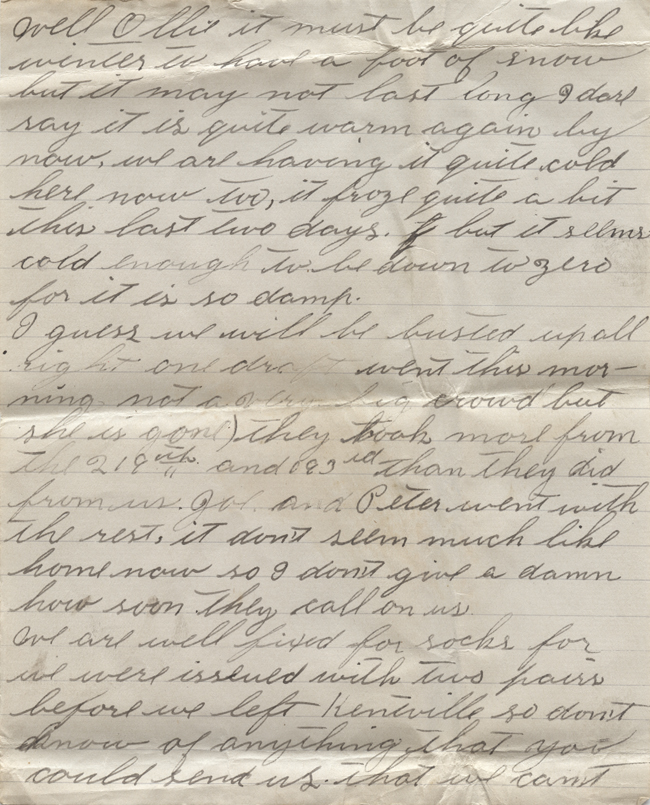 well Ollie it must be quite like
winter to have a foot of snow
but it may not last long I dare
say it is quite warm again by
now, we are having it quite cold
here now too, it froze quite a bit
this last two days. but it seems
cold enough to be down to zero
for it is so damp.
I guess we will be busted up all
right one draft went this mor-
ning not a very big crowd but
she is gone) they took more from
the 219th and 193rd than they did
from us. Joe. and Peter went with
the rest, it don't seem much like
home now so I don't give a damn
how soon they call on us.
we are well fixed for socks for
we were issued with two pairs
before we left Kentville so don't
know of anything that you
could send us. that we can't